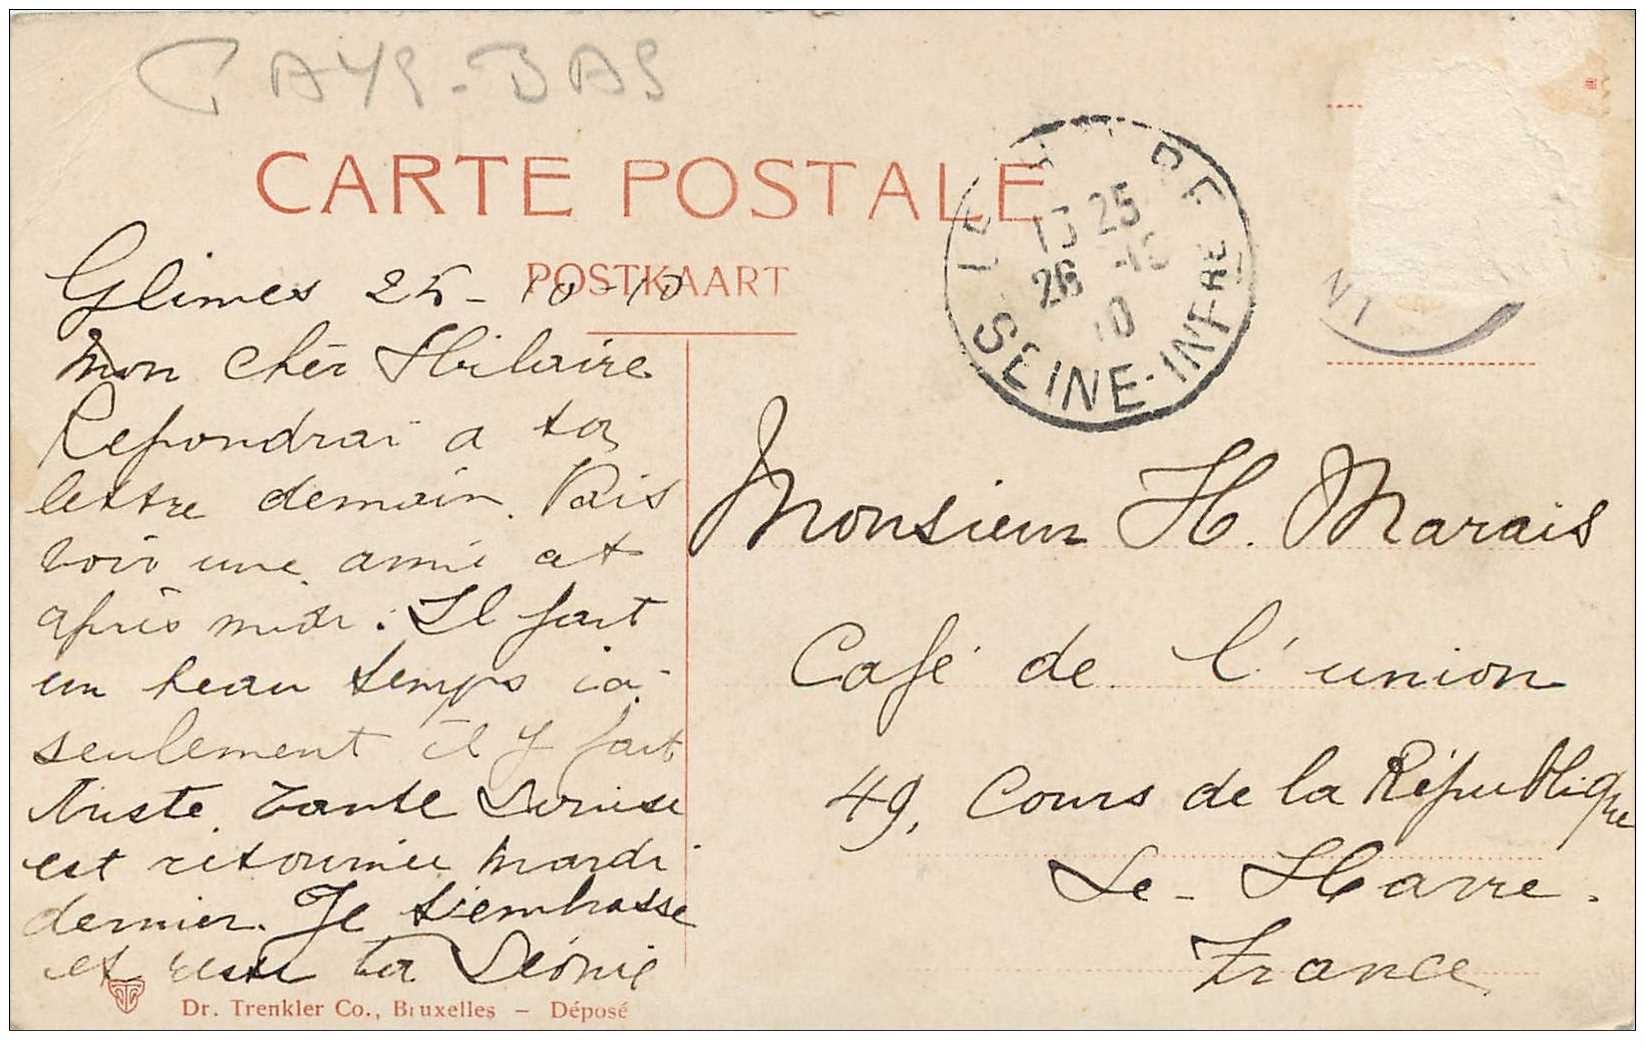 PAYS-BAS
CARTE POSTALE
POSTKAART
Glimes 25-10-10
Mon cher Hilaire
Repondrai a ta
lettre demain. Vais
voir une amie cet
après midi. Il fait
un beau temps ici
seulement il y fait
triste. Tante Louise
est retournée mardi
dernier. Je t'embrasse
et reste ta Léonie
13 25
26 -10
10
SEINE-INFRE
Monsieur H. Marais
Café de l'union
49, Cours de la République
Le-Havre.
France
Dr. Trenkler Co., Bruxelles – Déposé